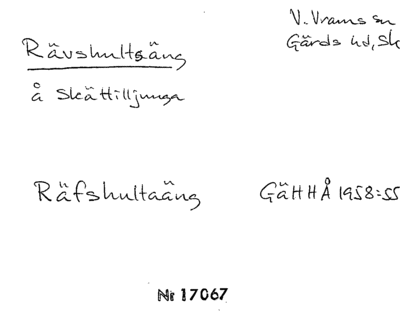 V. Vrams sn
Rävshultsäng
Gärds hd, Sk
å Skättilljunga
Räfshultaäng
GäHHÅ 1958:55
Nr 17067